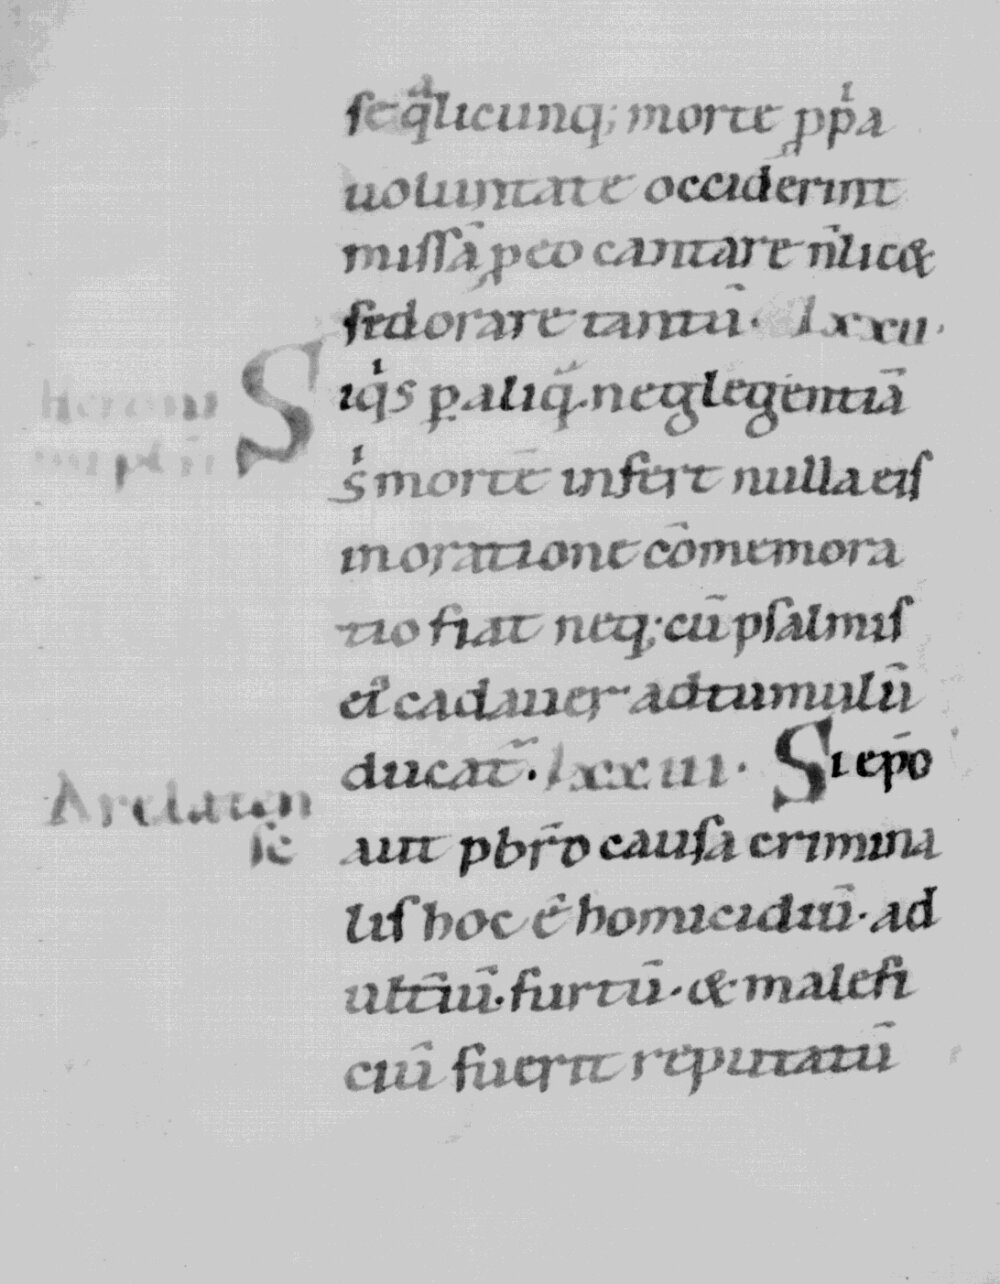 se q̣ͣlicunq; morte pp̍a
uoluntate occiderint
missā p eo cantare n̄ lic&
sed orare tantū· lxxii·
Siq̍s p aliq̄ neglegentiā
s̍ morte infert nulla eis
in oratione cōmemora
tio fiat neq; cū psalmis
ei cadauer ad tumulū
ducat̄· lxxiii· Si ep̄o
aut pbr̄o causa crimina
lis hoc ē homicidiū· ad
ult̄iū· furtū· & malefi
ciū fuerit reputatū
Arelaten
se